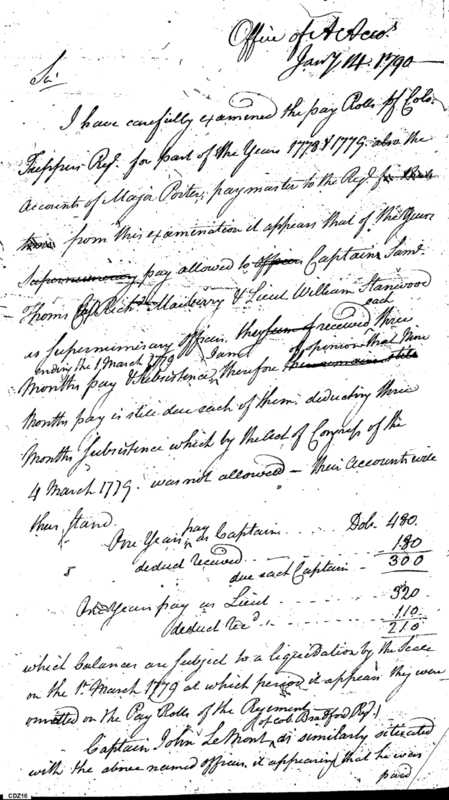 Office of A Acco.ts
Jan.y 14. 1790
Sir
I have carefully examined the pay Rolls of Colo.
Tuppers Reg.t for part of the Years 1778 & 1779. also the
Accounts of Major Porter, paymaster to the Reg.t for
from this examination it appears that of the Years
Supernumerary pay allowed to Officers Captains Sam.l
Thoms & Rich.d Maiberry & Lieut William Stanwood
as Supermimirary officers, they received each three
ending the 1 March 1779
Months pay & Subsistence, I am therefore of opinion that Nine
Months pay is still due each of them, deducting three
Months Subsistence which by the Act of Congress of the
4 March 1779. was not allowed — their Accounts will
thus Stand.
One Years pay as Captain ... Dols. 480.
deduct received ... 180
due each Captain - 300
One Years pay as Lieut ... 320
deduct Rec.d ... 110.
210
which balances are subject to a liquidation by the Scale
on the 1st March 1779 at which period it appears they were
omitted on the Pay Rolls of the Regiments
Captain John LeMont of Col. Bradford Reg.t is similarly situated
with the above named officers, it appearing that he was
paid
CDZ16